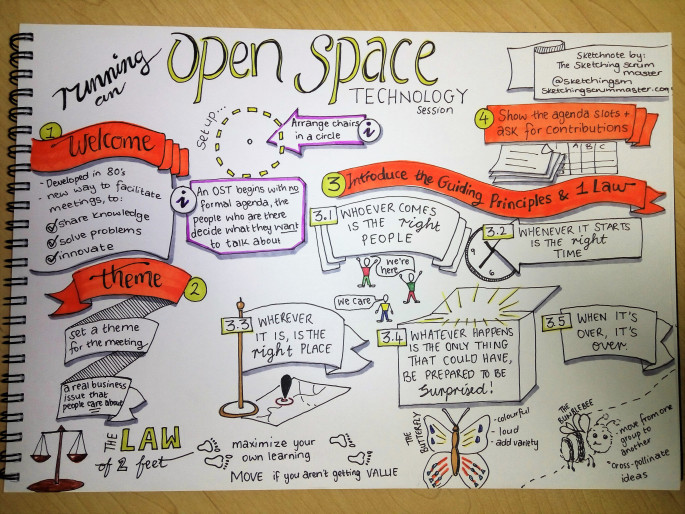 running
an
open space
TECHNOLOGY
session
Sketchnote by:
The Sketching scrum
master
@sketchingsm
Sketchingscrummaster.com
1
Welcome
- Developed in 80's
- new way to facilitate
meetings, to:
share knowledge
solve problems
innovate
Set up...
Arrange chairs
in a circle
i
i
An OST begins with no
formal agenda, the
people who are there
decide what they want
to talk about
2
theme
set a theme
for the meeting
a real business
issue that
people care about
3
Introduce the Guiding Principles & 1 Law
3.1
WHOEVER COMES
IS THE right
PEOPLE
we're
here
we care
3.2
WHENEVER IT STARTS
IS THE right
TIME
9
6
3.3
WHEREVER
IT IS, IS THE
right PLACE
3.4
WHATEVER HAPPENS
IS THE ONLY THING
THAT COULD HAVE,
BE PREPARED TO BE
Surprised!
3.5
WHEN IT'S
OVER, IT'S
over.
4
Show the agenda slots +
ask for contributions
A B C
THE LAW
of 2 feet
maximize your
own learning
MOVE if you aren't getting VALUE
THE
BUTTERFLY
- colourful
- loud
- add variety
THE
BUMBLEBEE
- move from one
group to
another
- cross-pollinate
ideas